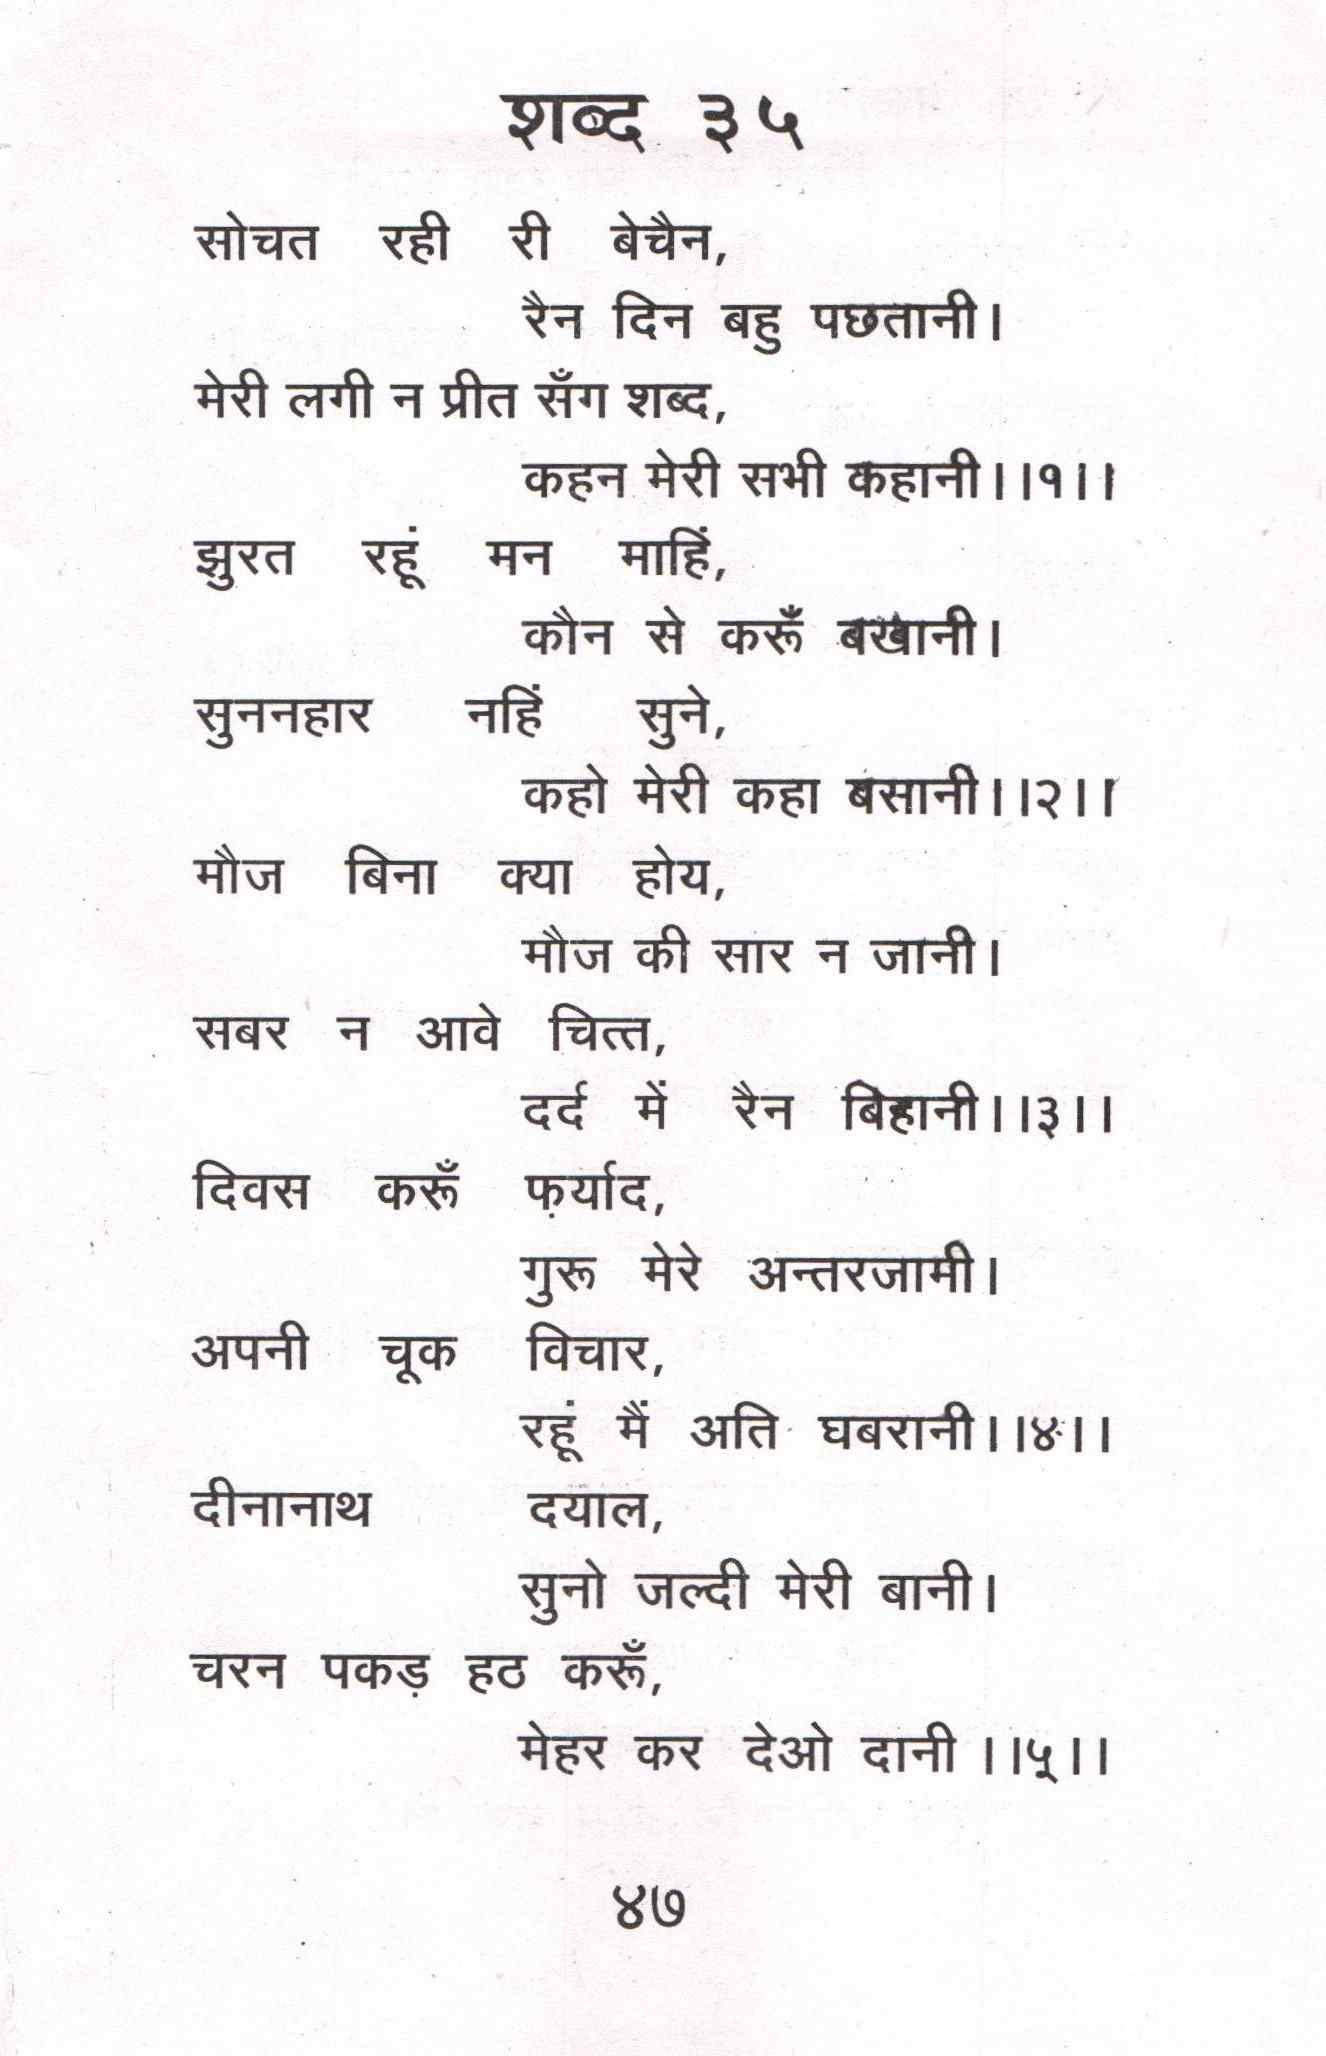 शब्द ३५
सोचत रही री बेचैन,
रैन दिन बहु पछतानी।
मेरी लगी न प्रीत सँग शब्द,
कहन मेरी सभी कहानी।।१।।
झुरत रहूं मन माहिं,
कौन से करूँ बखानी।
सुननहार नहिं सुने,
कहो मेरी कहा बसानी।।२।।
मौज बिना क्या होय,
मौज की सार न जानी।
सबर न आवे चित्त,
दर्द में रैन बिहानी।।३।।
दिवस करूँ फ़र्याद,
गुरू मेरे अन्तरजामी।
अपनी चूक विचार,
रहूं मैं अति घबरानी।।४।।
दीनानाथ दयाल,
सुनो जल्दी मेरी बानी।
चरन पकड़ हठ करूँ,
मेहर कर देओ दानी ।।५।।
४७